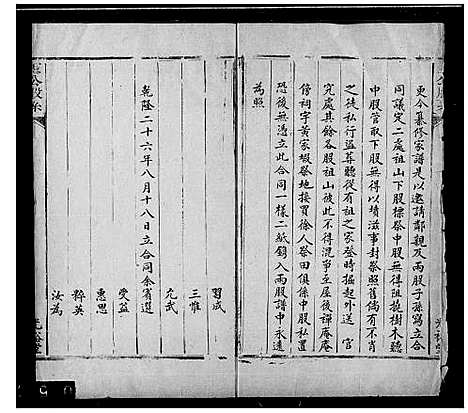 更今纂修家譜是以邀請鄰親及兩股子孫寫立合
同議定二處祖山下股標祭中股無得砠撓樹木聽
中股管取下股無得以墳滋事封祭照舊倘有不肖
之徒私行盜葬聽從有祖之家登時掘起叶送 官
究處其餘各股祖山彼此不得混爭至屋後禪庵庵
傍祠宇黃家塅祭地接買徐人祭田俱係中股私置
恐後無憑立此合同一樣二紙鐫入兩股譜中永遠
為照
乾隆二十六年八月十八日立合同余賓選
習咸
三惟
允武
受益
惠思
粹英
汝為